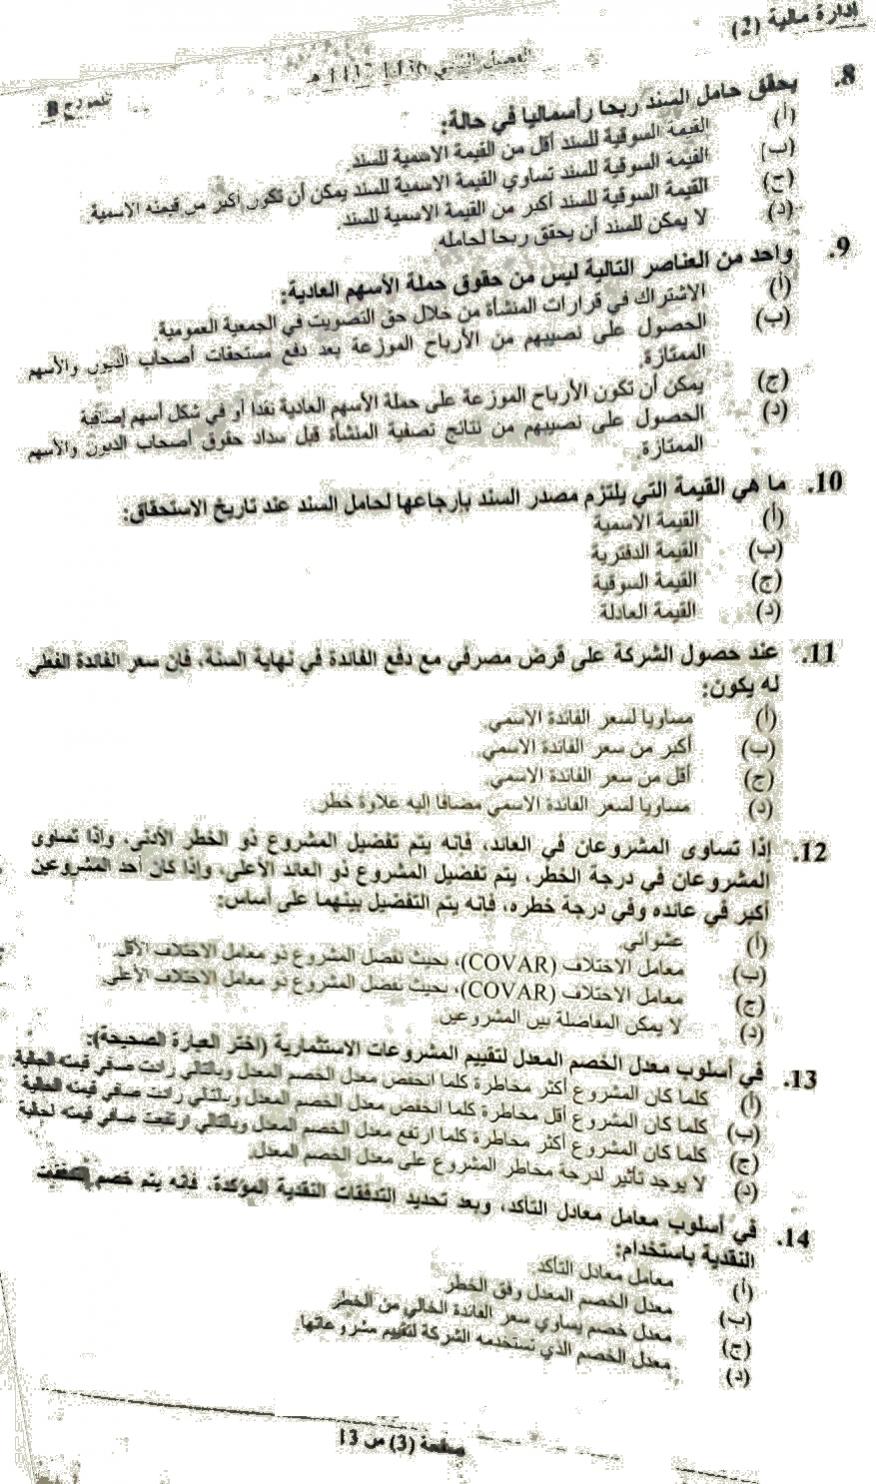 إدارة مالية (2)
الفصل الثاني 1436-1437 هـ
نموذج B
8. يحقق حامل السند ربحا رأسماليا في حالة:
(أ) القيمة السوقية للسند أقل من القيمة الاسمية للسند.
(ب) القيمة السوقية للسند تساوي القيمة الاسمية للسند يمكن أن تكون أكبر من قيمته الاسمية.
(ج) القيمة السوقية للسند أكبر من القيمة الاسمية للسند.
(د) لا يمكن للسند أن يحقق ربحا لحامله.
9. واحد من العناصر التالية ليس من حقوق حملة الأسهم العادية:
(أ) الاشتراك في قرارات المنشأة من خلال حق التصويت في الجمعية العمومية.
(ب) الحصول على نصيبهم من الأرباح الموزعة بعد دفع مستحقات أصحاب الديون والأسهم
الممتازة.
(ج) يمكن أن تكون الأرباح الموزعة على حملة الأسهم العادية نقدا أو في شكل أسهم إضافية
(د) الحصول على نصيبهم من نتائج تصفية المنشأة قبل سداد حقوق أصحاب الديون والأسهم
الممتازة.
10. ما هي القيمة التي يلتزم مصدر السند بإرجاعها لحامل السند عند تاريخ الاستحقاق:
(أ) القيمة الاسمية
(ب) القيمة الدفترية
(ج) القيمة السوقية
(د) القيمة العادلة
11. عند حصول الشركة على قرض مصرفي مع دفع الفائدة في نهاية السنة، فان سعر الفائدة الفعلي
له يكون:
(أ) مساويا لسعر الفائدة الاسمي.
(ب) أكبر من سعر الفائدة الاسمي.
(ج) أقل من سعر الفائدة الاسمي.
(د) مساويا لسعر الفائدة الاسمي مضافا إليه علاوة خطر.
12. إذا تساوى المشروعان في العائد، فانه يتم تفضيل المشروع ذو الخطر الأدنى، وإذا تساوى
المشروعان في درجة الخطر، يتم تفضيل المشروع ذو العائد الأعلى، وإذا كان أحد المشروعين
أكبر في عائده وفي درجة خطره، فانه يتم التفضيل بينهما على أساس:
(أ) عشوائي.
(ب) معامل الاختلاف (COVAR)، بحيث نفضل المشروع ذو معامل الاختلاف الأقل.
(ج) معامل الاختلاف (COVAR)، بحيث نفضل المشروع ذو معامل الاختلاف الأعلى.
(د) لا يمكن المفاضلة بين المشروعين.
13. في أسلوب معدل الخصم المعدل لتقييم المشروعات الاستثمارية (اختر العبارة الصحيحة):
(أ) كلما كان المشروع أكثر مخاطرة كلما انخفض معدل الخصم المعدل وبالتالي زادت صافي قيمته الحالية.
(ب) كلما كان المشروع أقل مخاطرة كلما انخفض معدل الخصم المعدل وبالتالي زادت صافي قيمته الحالية
(ج) كلما كان المشروع أكثر مخاطرة كلما ارتفع معدل الخصم المعدل وبالتالي ارتفعت صافي قيمته الحالية
(د) لا يوجد تأثير لدرجة مخاطر المشروع على معدل الخصم المعدل.
14. في أسلوب معامل معادل التأكد، وبعد تحديد التدفقات النقدية المؤكدة، فانه يتم خصم التدفقات
النقدية باستخدام:
(أ) معامل معادل التأكد
(ب) معدل الخصم المعدل وفق الخطر
(ج) معدل خصم يساوي سعر الفائدة الخالي من الخطر
(د) معدل الخصم الذي تستخدمه الشركة لتقييم مشروعاتها.
صفحة (3) من 13